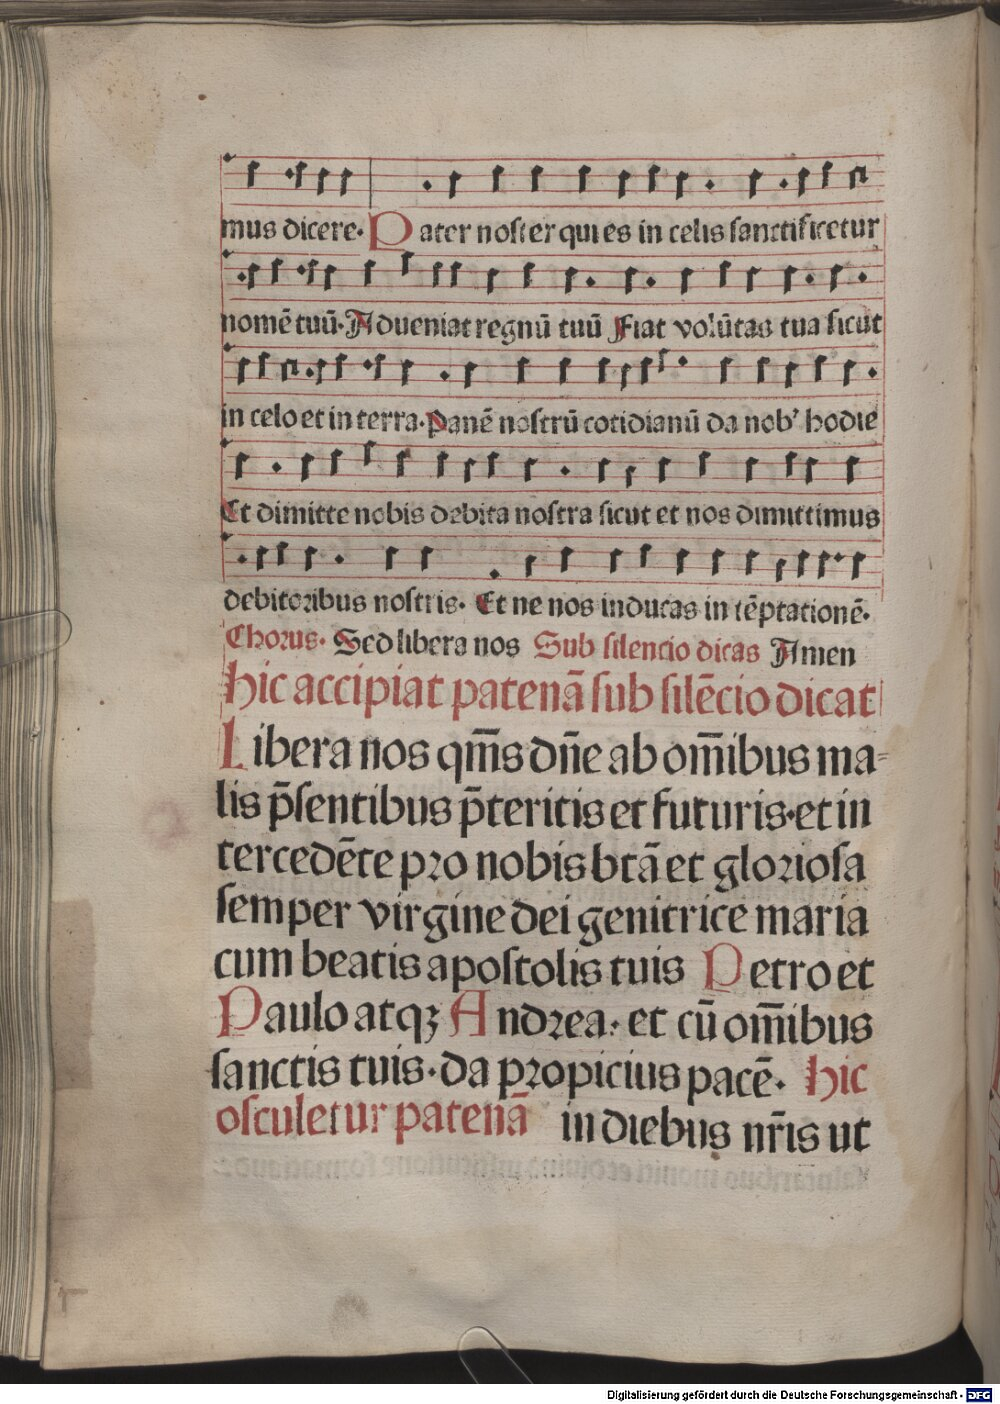 mus dicere· Pater noster qui es in celis sanctificetur
nomē tuū· Adueniat regnū tuū Fiat volūtas tua sicut
in celo et in terra· Panē nostrū cotidianū da nob' hodie
Et dimitte nobis debita nostra sicut et nos dimittimus
debitoribus nostris· Et ne nos inducas in tēptationē·
Chorus· Sed libera nos Sub silencio dicas Amen
hic accipiat patenā sub silēcio dicat
Libera nos qm̄s dn̄e ab om̄ibus ma=
lis p̄sentibus p̄teritis et futuris· et in
tercedēte pro nobis btā et gloriosa
semper virgine dei genitrice maria
cum beatis apostolis tuis Petro et
Paulo atqꝫ Andrea: et cū om̄ibus
sanctis tuis· da propicius pacē· hic
osculetur patenā in diebus nr̄is ut
Digitalisierung gefördert durch die Deutsche Forschungsgemeinschaft - DFG